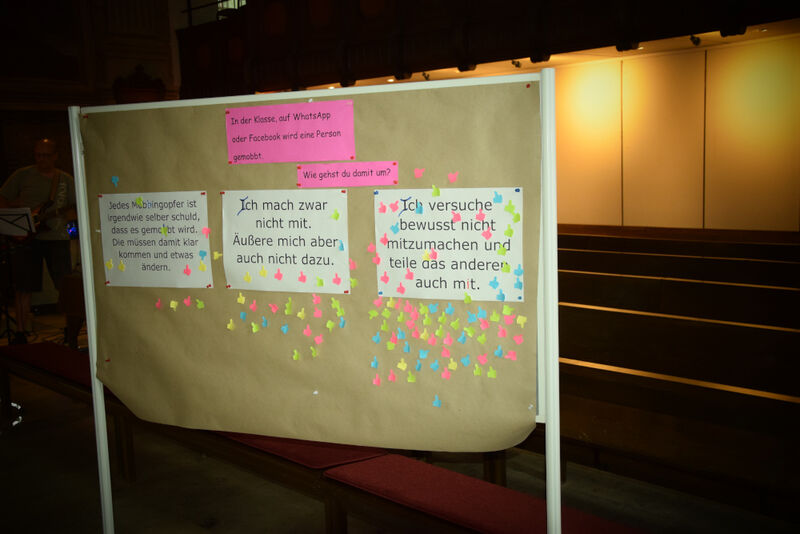 In der Klasse, auf WhatsApp
oder Facebook wird eine Person
gemobbt.
Wie gehst du damit um?
Jedes Mobbingopfer ist
irgendwie selber schuld,
dass es gemobbt wird.
Die müssen damit klar
kommen und etwas
ändern.
Ich mach zwar
nicht mit.
Äußere mich aber
auch nicht dazu.
Ich versuche
bewusst nicht
mitzumachen und
teile das anderen
auch mit.